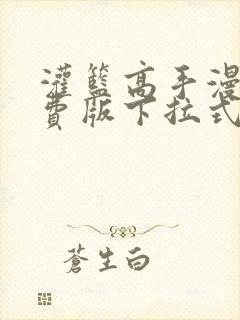 灌籃高手漫
費版下拉式
蒼生白